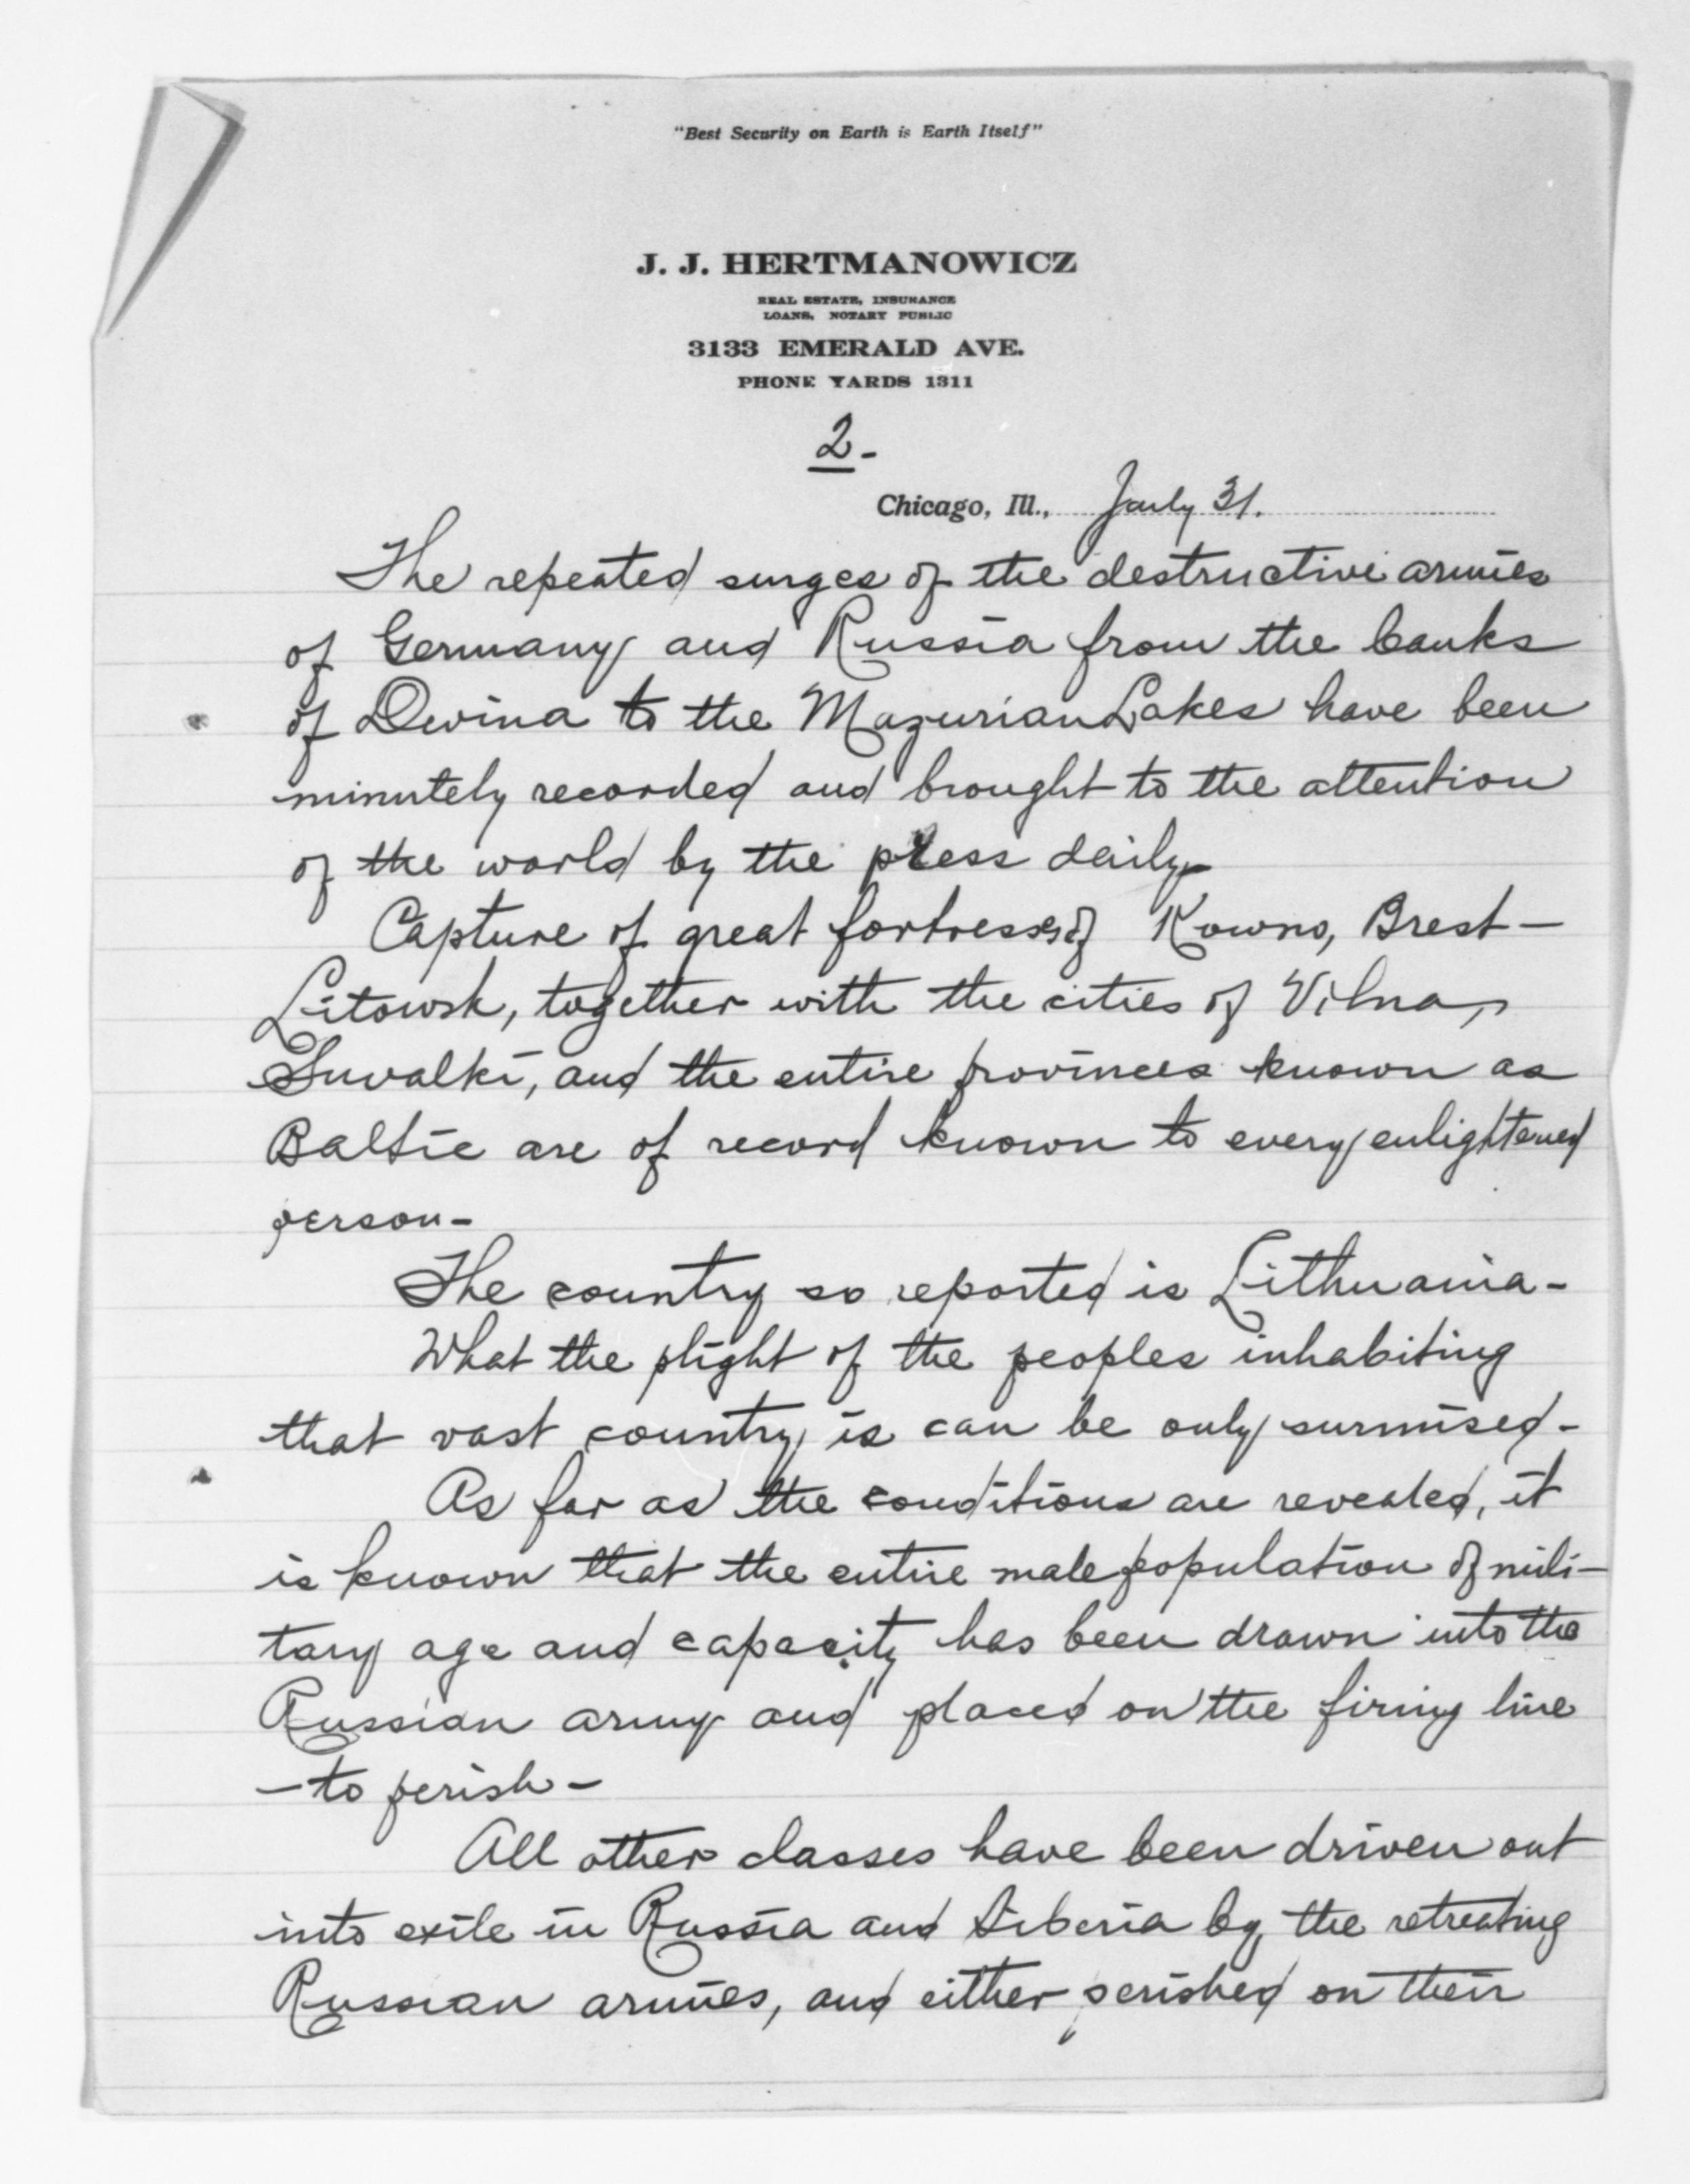 "Best Security on Earth is Earth Itself"
J. J. HERTMANOWICZ
REAL ESTATE, INSURANCE
LOANS, NOTARY PUBLIC
3133 EMERALD AVE.
PHONE YARDS 1311
2-
Chicago, Ill., July 31.
The repeated surges of the destructive armies
of Germany and Russia from the banks
of Dwina to the Mazurian Lakes have been
minutely recorded and brought to the attention
of the world by the press daily-
Capture of great fortresses of Kowno, Brest-
Litowsk, together with the cities of Vilna,
Suvalki, and the entire provinces known as
Baltic are of record known to every enlightened
person-
The country so reported is Lithuania-
What the plight of the peoples inhabiting
that vast country is can be only surmised-
As far as the conditions are revealed, it
is known that the entire male population of mili-
tary age and capacity has been drawn into the
Russian army and placed on the firing line
-to perish-
All other classes have been driven out
into exile in Russia and Siberia by the retreating
Russian armies, and either perished on their